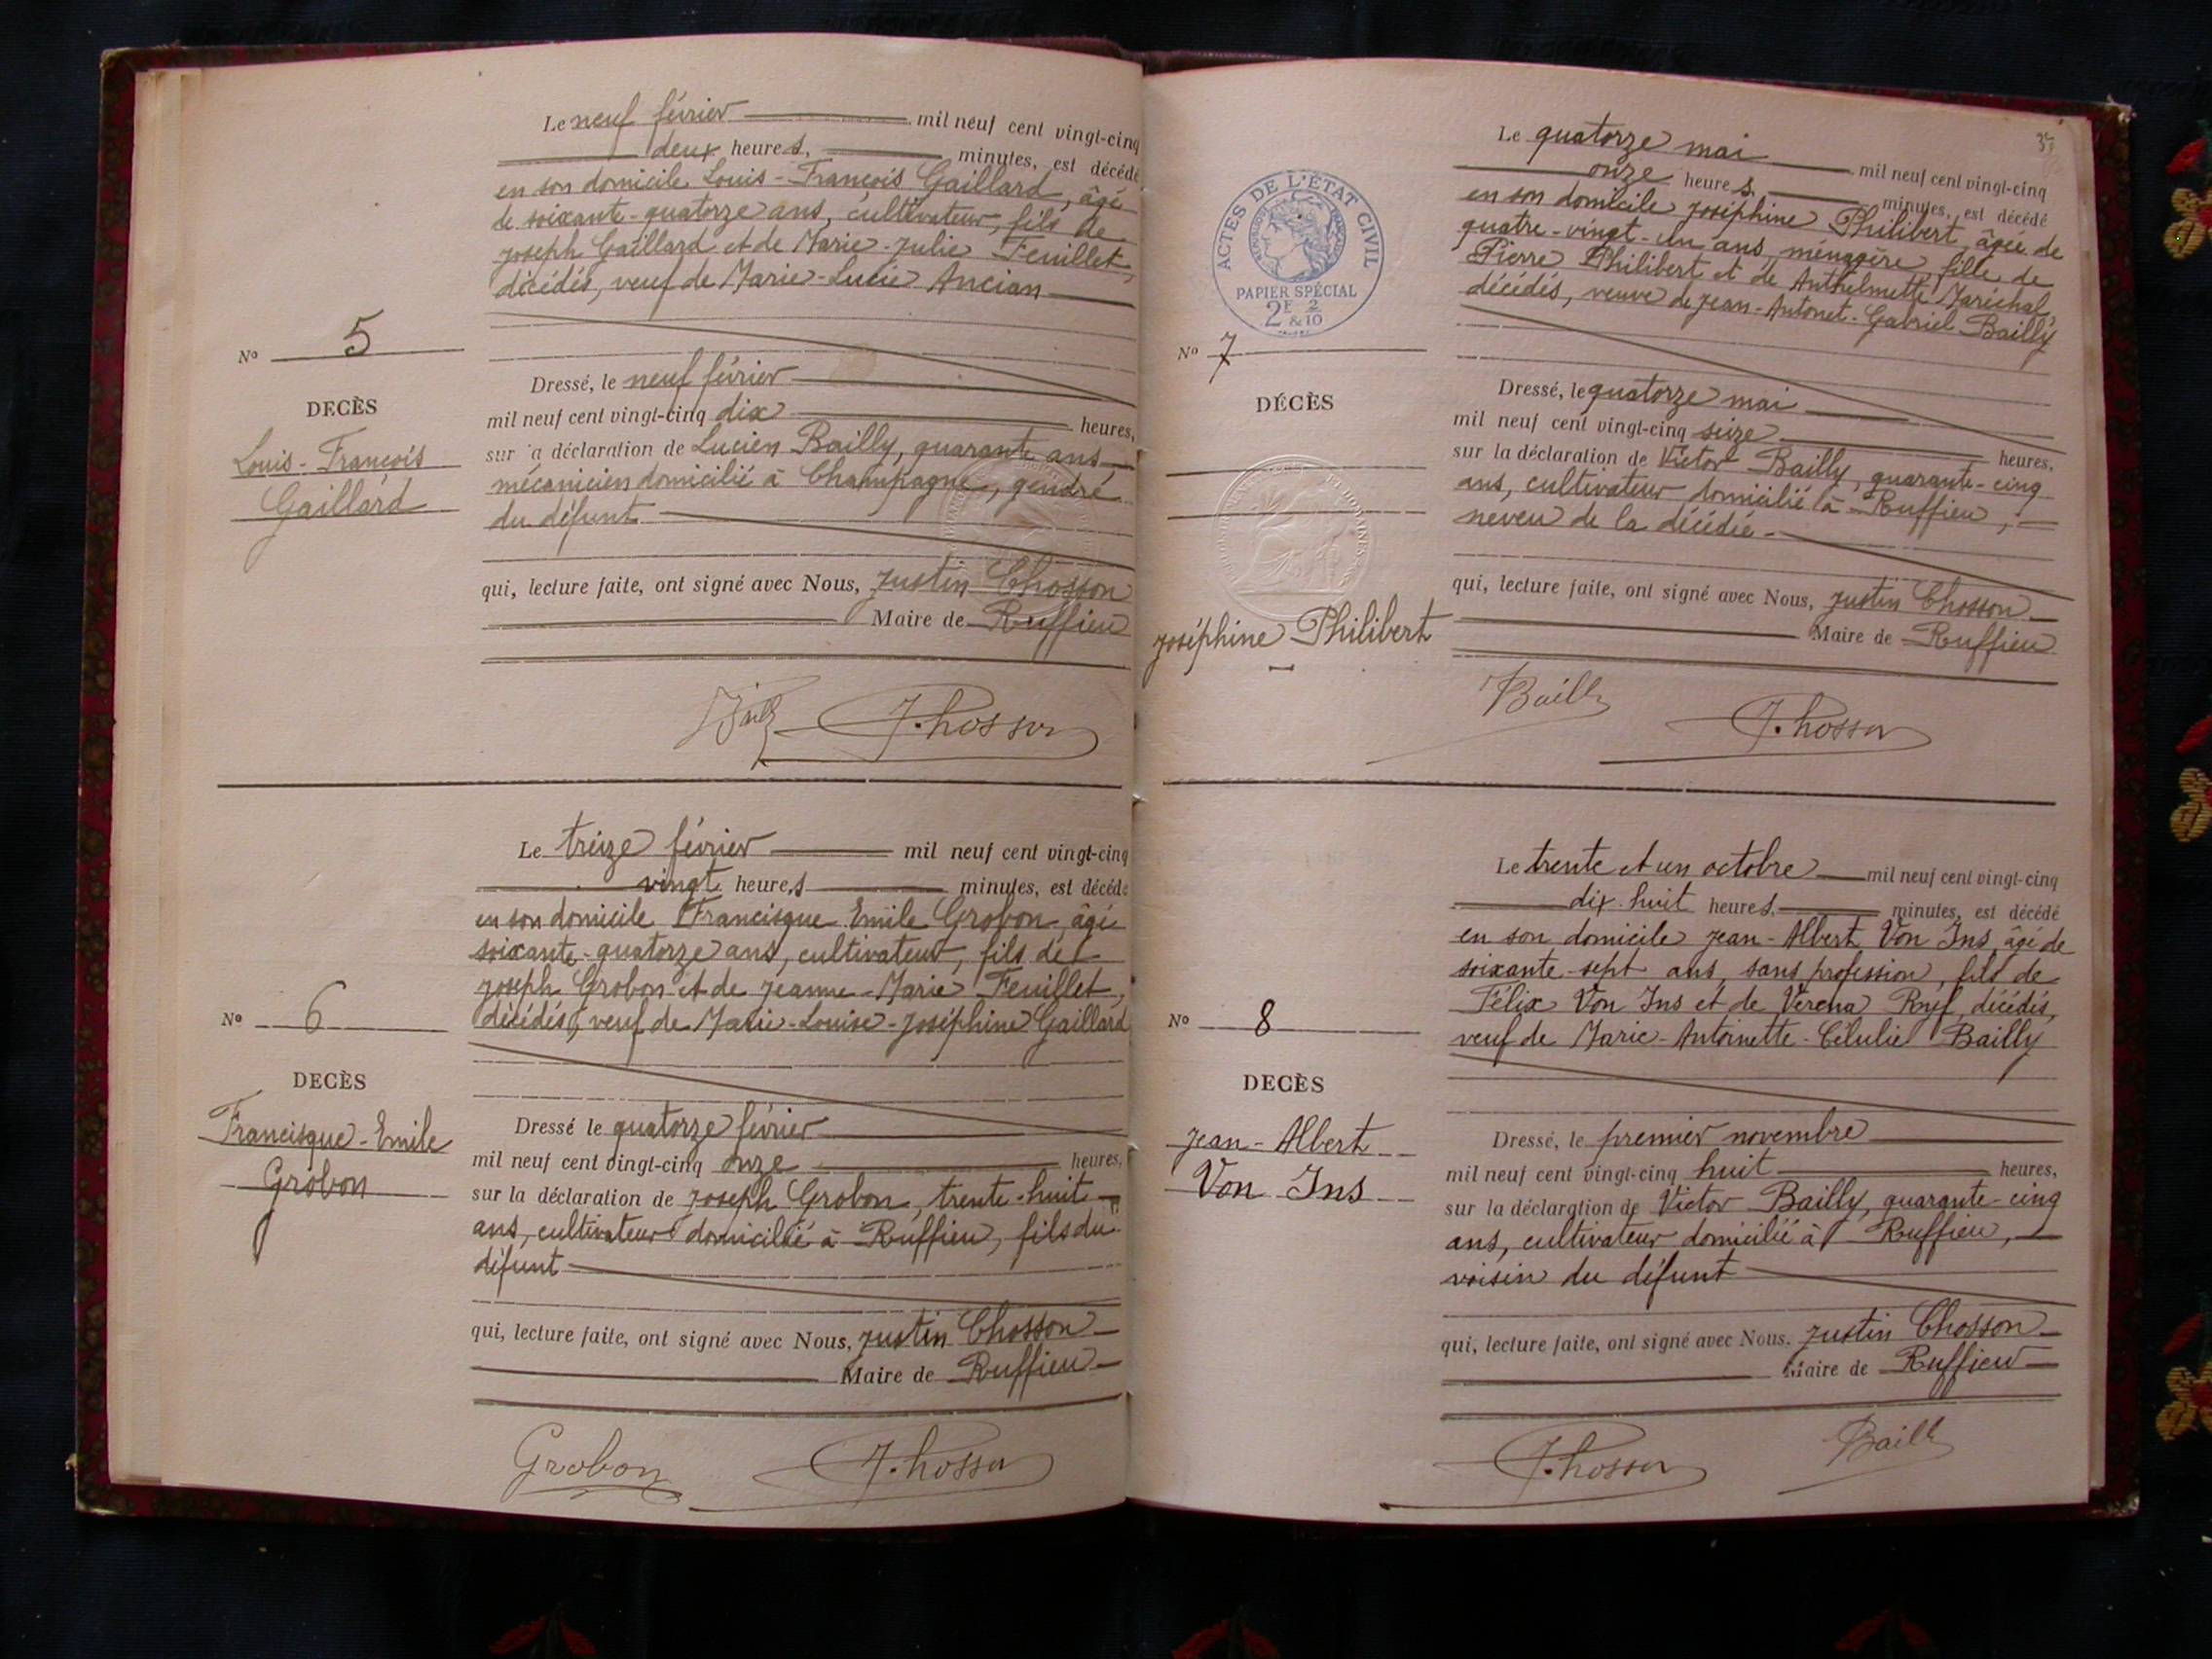 Le neuf février mil neuf cent vingt-cinq
deux heures, minutes, est décédé
en son domicile Louis-François Gaillard, âgé
de soixante-quatorze ans, cultivateur, fils de
Joseph Gaillard et de Marie-Julie Feuillet,
décédés, veuf de Marie-Lucie Ancian
No 5
DECÈS
Louis-François
Gaillard
Dressé, le neuf février
mil neuf cent vingt-cinq dix heures,
sur a déclaration de Lucien Bailly, quarante ans,
mécanicien domicilié à Champagne, gendre
du défunt
qui, lecture faite, ont signé avec Nous, Justin Chosson
Maire de Ruffieu
J. Chosson
Le treize février mil neuf cent vingt-cinq
vingt heures minutes, est décédé
en son domicile Francisque Emile Grobon, âgé
soixante-quatorze ans, cultivateur, fils de
Joseph Grobon et de Jeanne-Marie Feuillet,
décédés, veuf de Marie-Louise-Joséphine Gaillard
No 6
DECÈS
Francisque-Emile
Grobon
Dressé le quatorze février
mil neuf cent vingt-cinq onze heures,
sur la déclaration de Joseph Grobon, trente-huit
ans, cultivateur domicilié à Ruffieu, fils du
défunt
qui, lecture faite, ont signé avec Nous, Justin Chosson
Maire de Ruffieu
Grobon J. Chosson
Le quatorze mai mil neuf cent vingt-cinq
onze heures, minutes, est décédé
en son domicile Joséphine Philibert, âgée de
quatre-vingt-un ans, ménagère, fille de
Pierre Philibert et de Anthelmette Maréchal,
décédés, veuve de Jean-Antonet-Gabriel Bailly
ACTES DE L'ÉTAT CIVIL
PAPIER SPÉCIAL
2E 2
& 10
No 7
DÉCÈS
Joséphine Philibert
Dressé, le quatorze mai
mil neuf cent vingt-cinq seize heures,
sur la déclaration de Victor Bailly, quarante-cinq
ans, cultivateur domicilié à Ruffieu,
neveu de la décédée.
qui, lecture faite, ont signé avec Nous, Justin Chosson
Maire de Ruffieu
Bailly J. Chosson
Le trente et un octobre mil neuf cent vingt-cinq
dix-huit heures, minutes, est décédé
en son domicile Jean-Albert Von Ins, âgé de
soixante-sept ans, sans profession, fils de
Félix Von Ins et de Verena Ryf, décédés,
veuf de Marie-Antoinette-Célulie Bailly
No 8
DECÈS
Jean-Albert
Von Ins
Dressé, le premier novembre
mil neuf cent vingt-cinq huit heures,
sur la déclaration de Victor Bailly, quarante-cinq
ans, cultivateur domicilié à Ruffieu,
voisin du défunt
qui, lecture faite, ont signé avec Nous. Justin Chosson
Maire de Ruffieu
J. Chosson Bailly